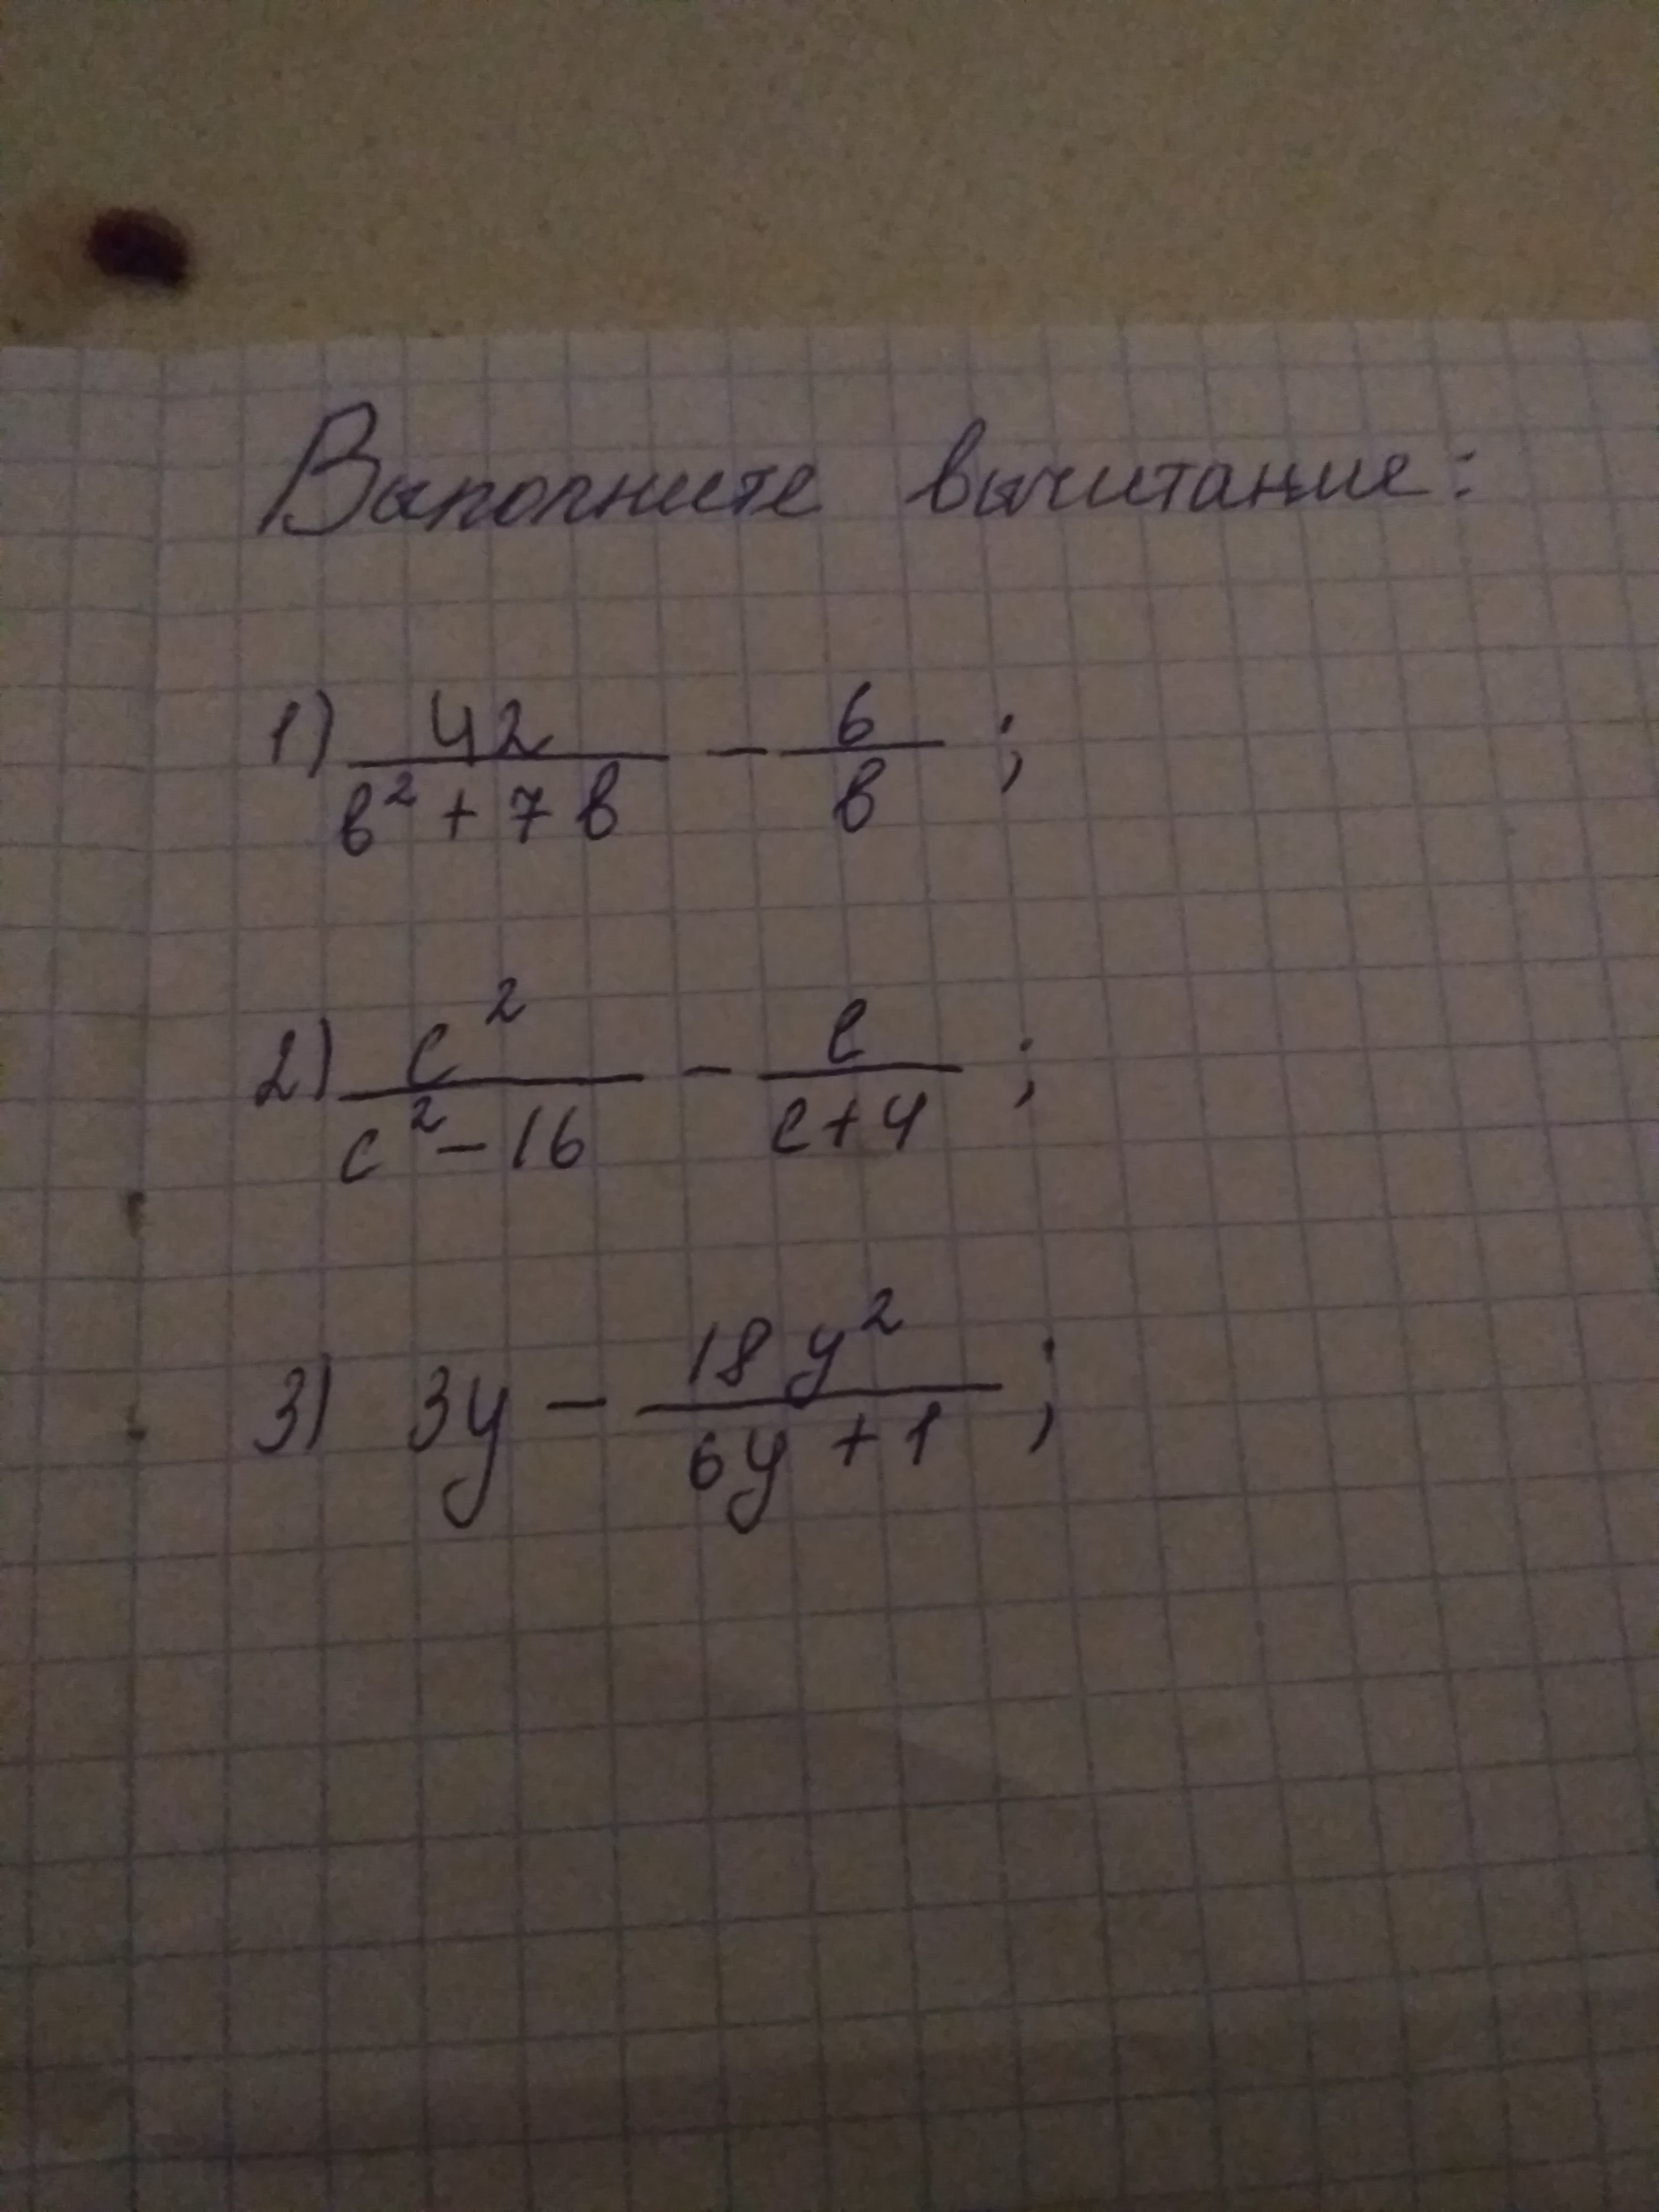 Выполните вычитание:
1) \frac{42}{b^2 + 7b} - \frac{6}{b} ;
2) \frac{c^2}{c^2 - 16} - \frac{c}{c+4} ;
3) 3y - \frac{18y^2}{6y + 1} ;